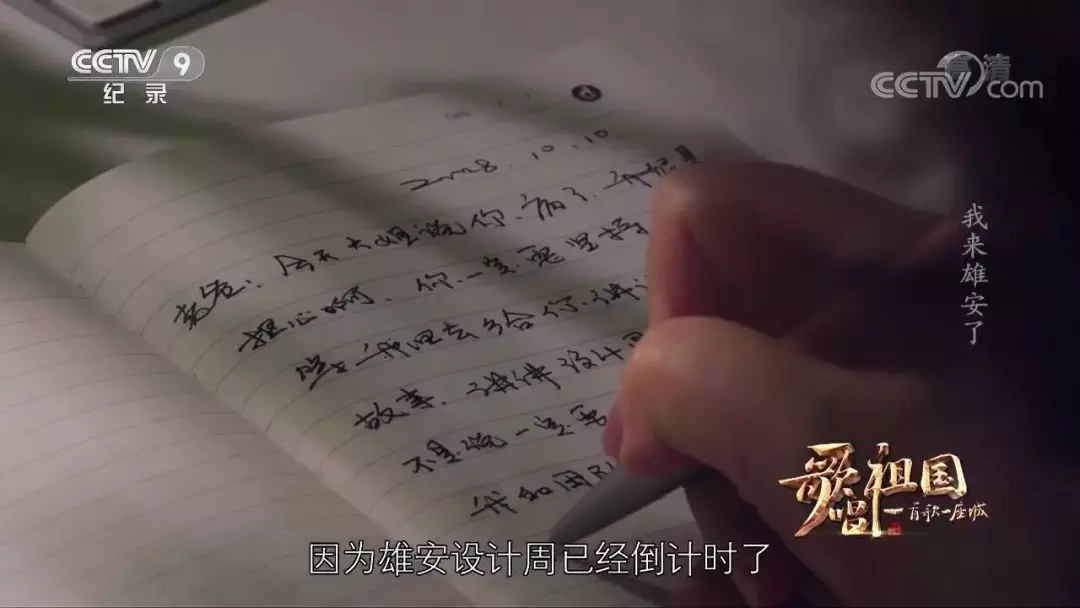 CCTV 9
纪录
高清
CCTV.com
2018.10.10
今天大姐说你病了
担心啊，你一定要坚持
我回去给你讲
故事，讲讲设计周
不是说一定要
我和团队
我来雄安了
歌唱祖国
一首歌一座城
因为雄安设计周已经倒计时了